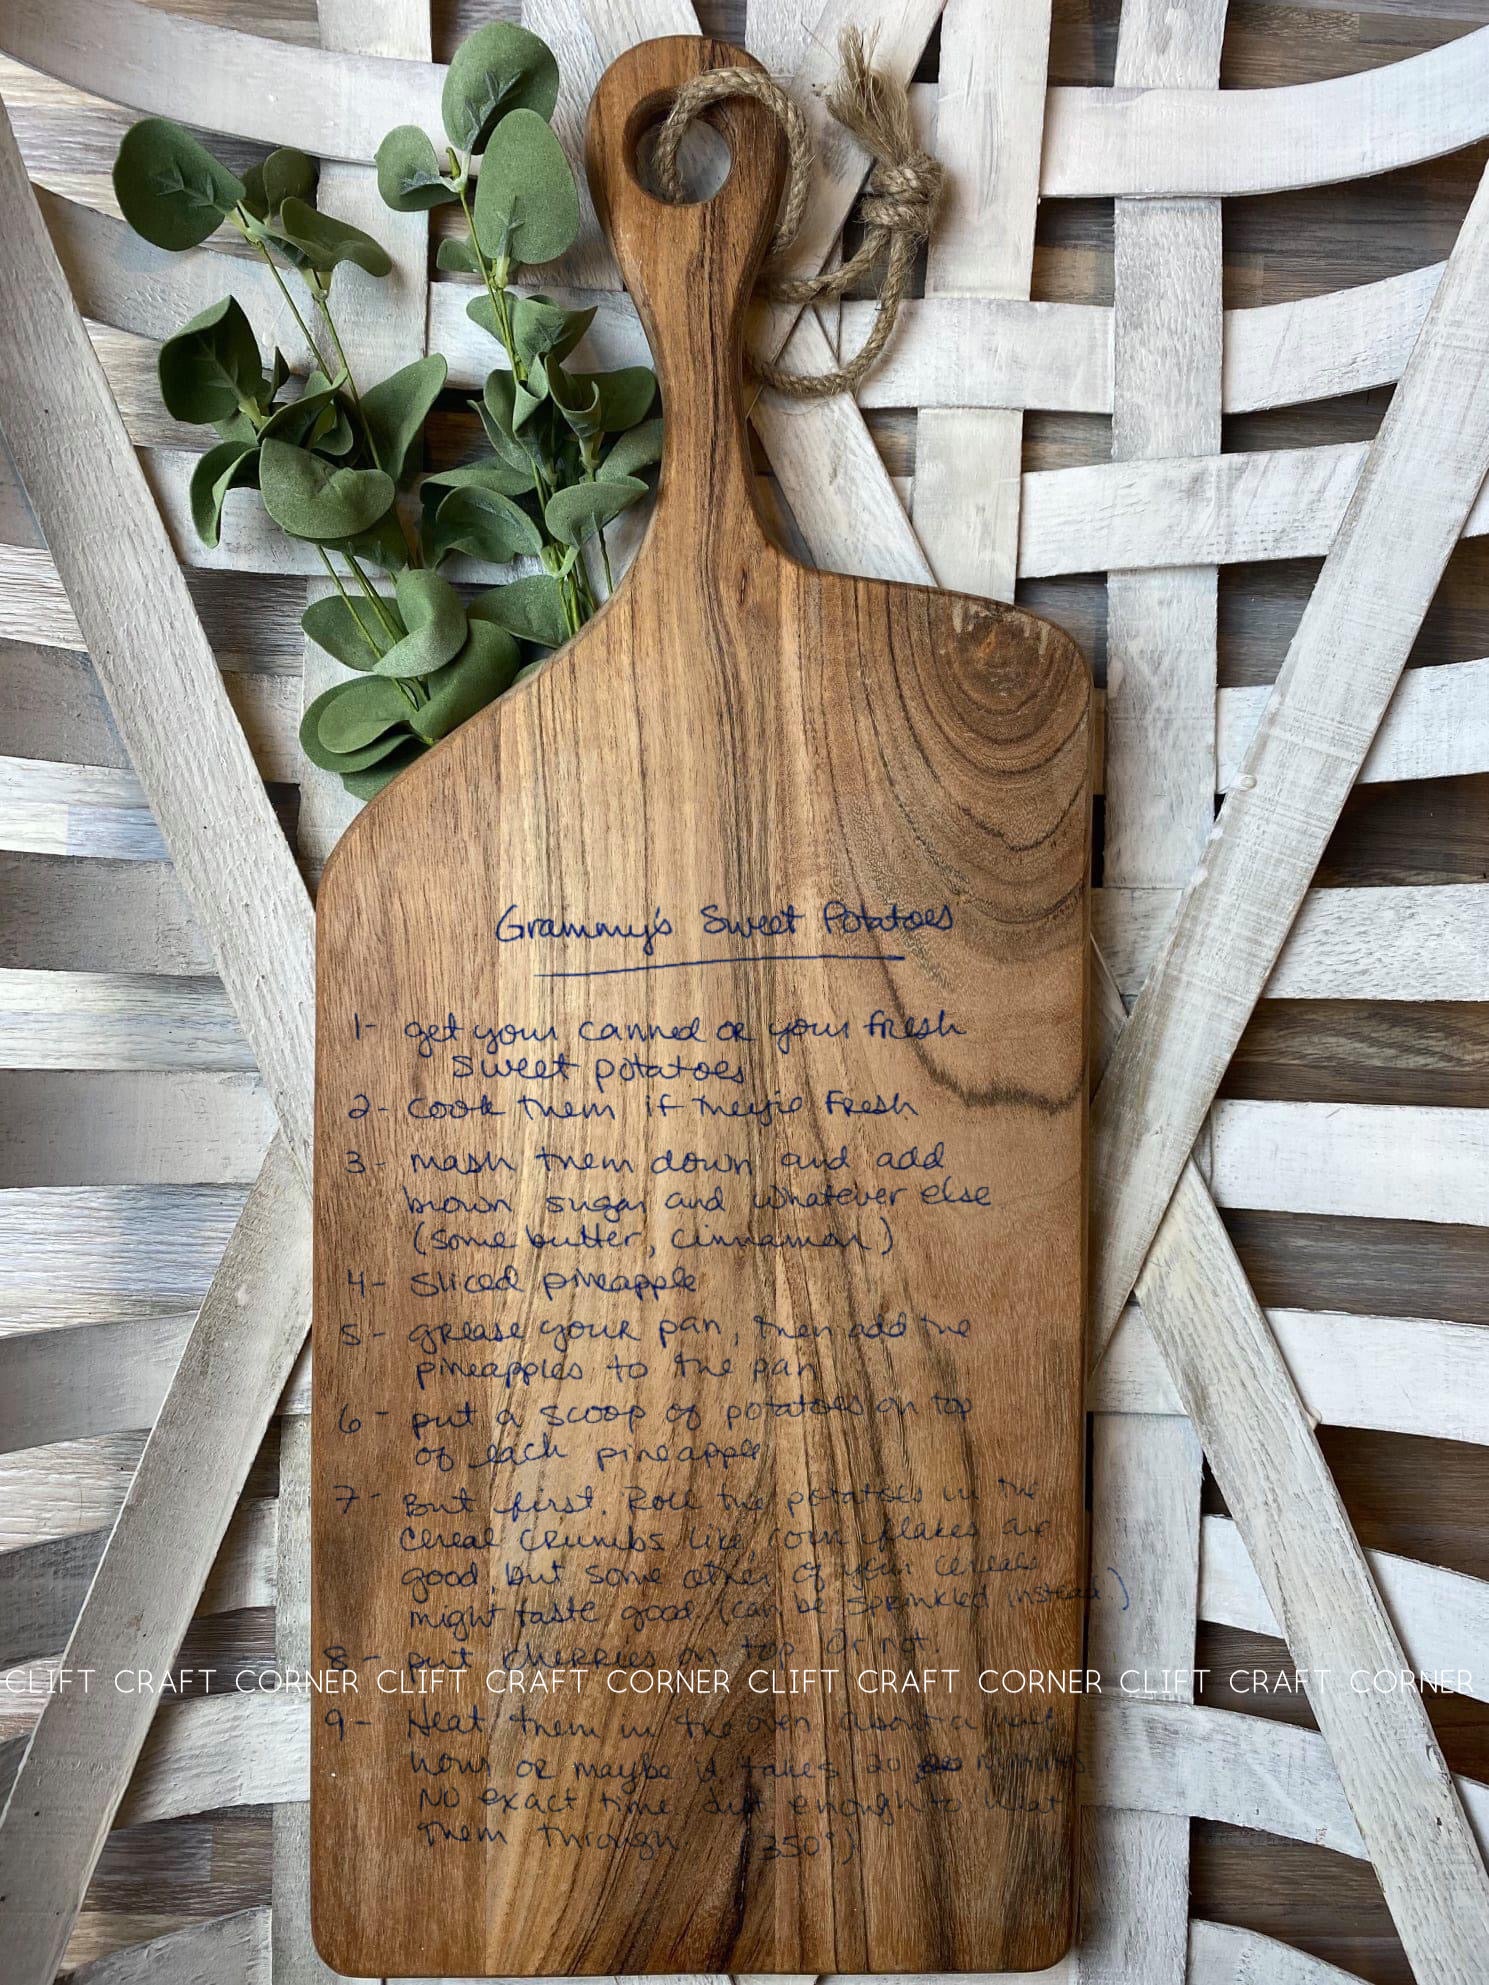 Grammy's Sweet Potatoes
1- get your canned or your fresh
sweet potatoes
2- cook them if they're fresh
3- mash them down and add
brown sugar and whatever else
(some butter, cinnamon)
4- sliced pineapple
5- grease your pan, then add the
pineapples to the pan
6- put a scoop of potatoes on top
of each pineapple
7- But first. Roll the potatoes in the
cereal crumbs like corn flakes are
good, but some other of your cereals
might taste good (can be sprinkled instead)
8- put cherries on top. Or not.
CLIFT CRAFT CORNER CLIFT CRAFT CORNER CLIFT CRAFT CORNER CLIFT CRAFT CORNER
9- Heat them in the oven about a half
hour or maybe it takes 20 minutes
No exact time just enough to heat
them through (350°)